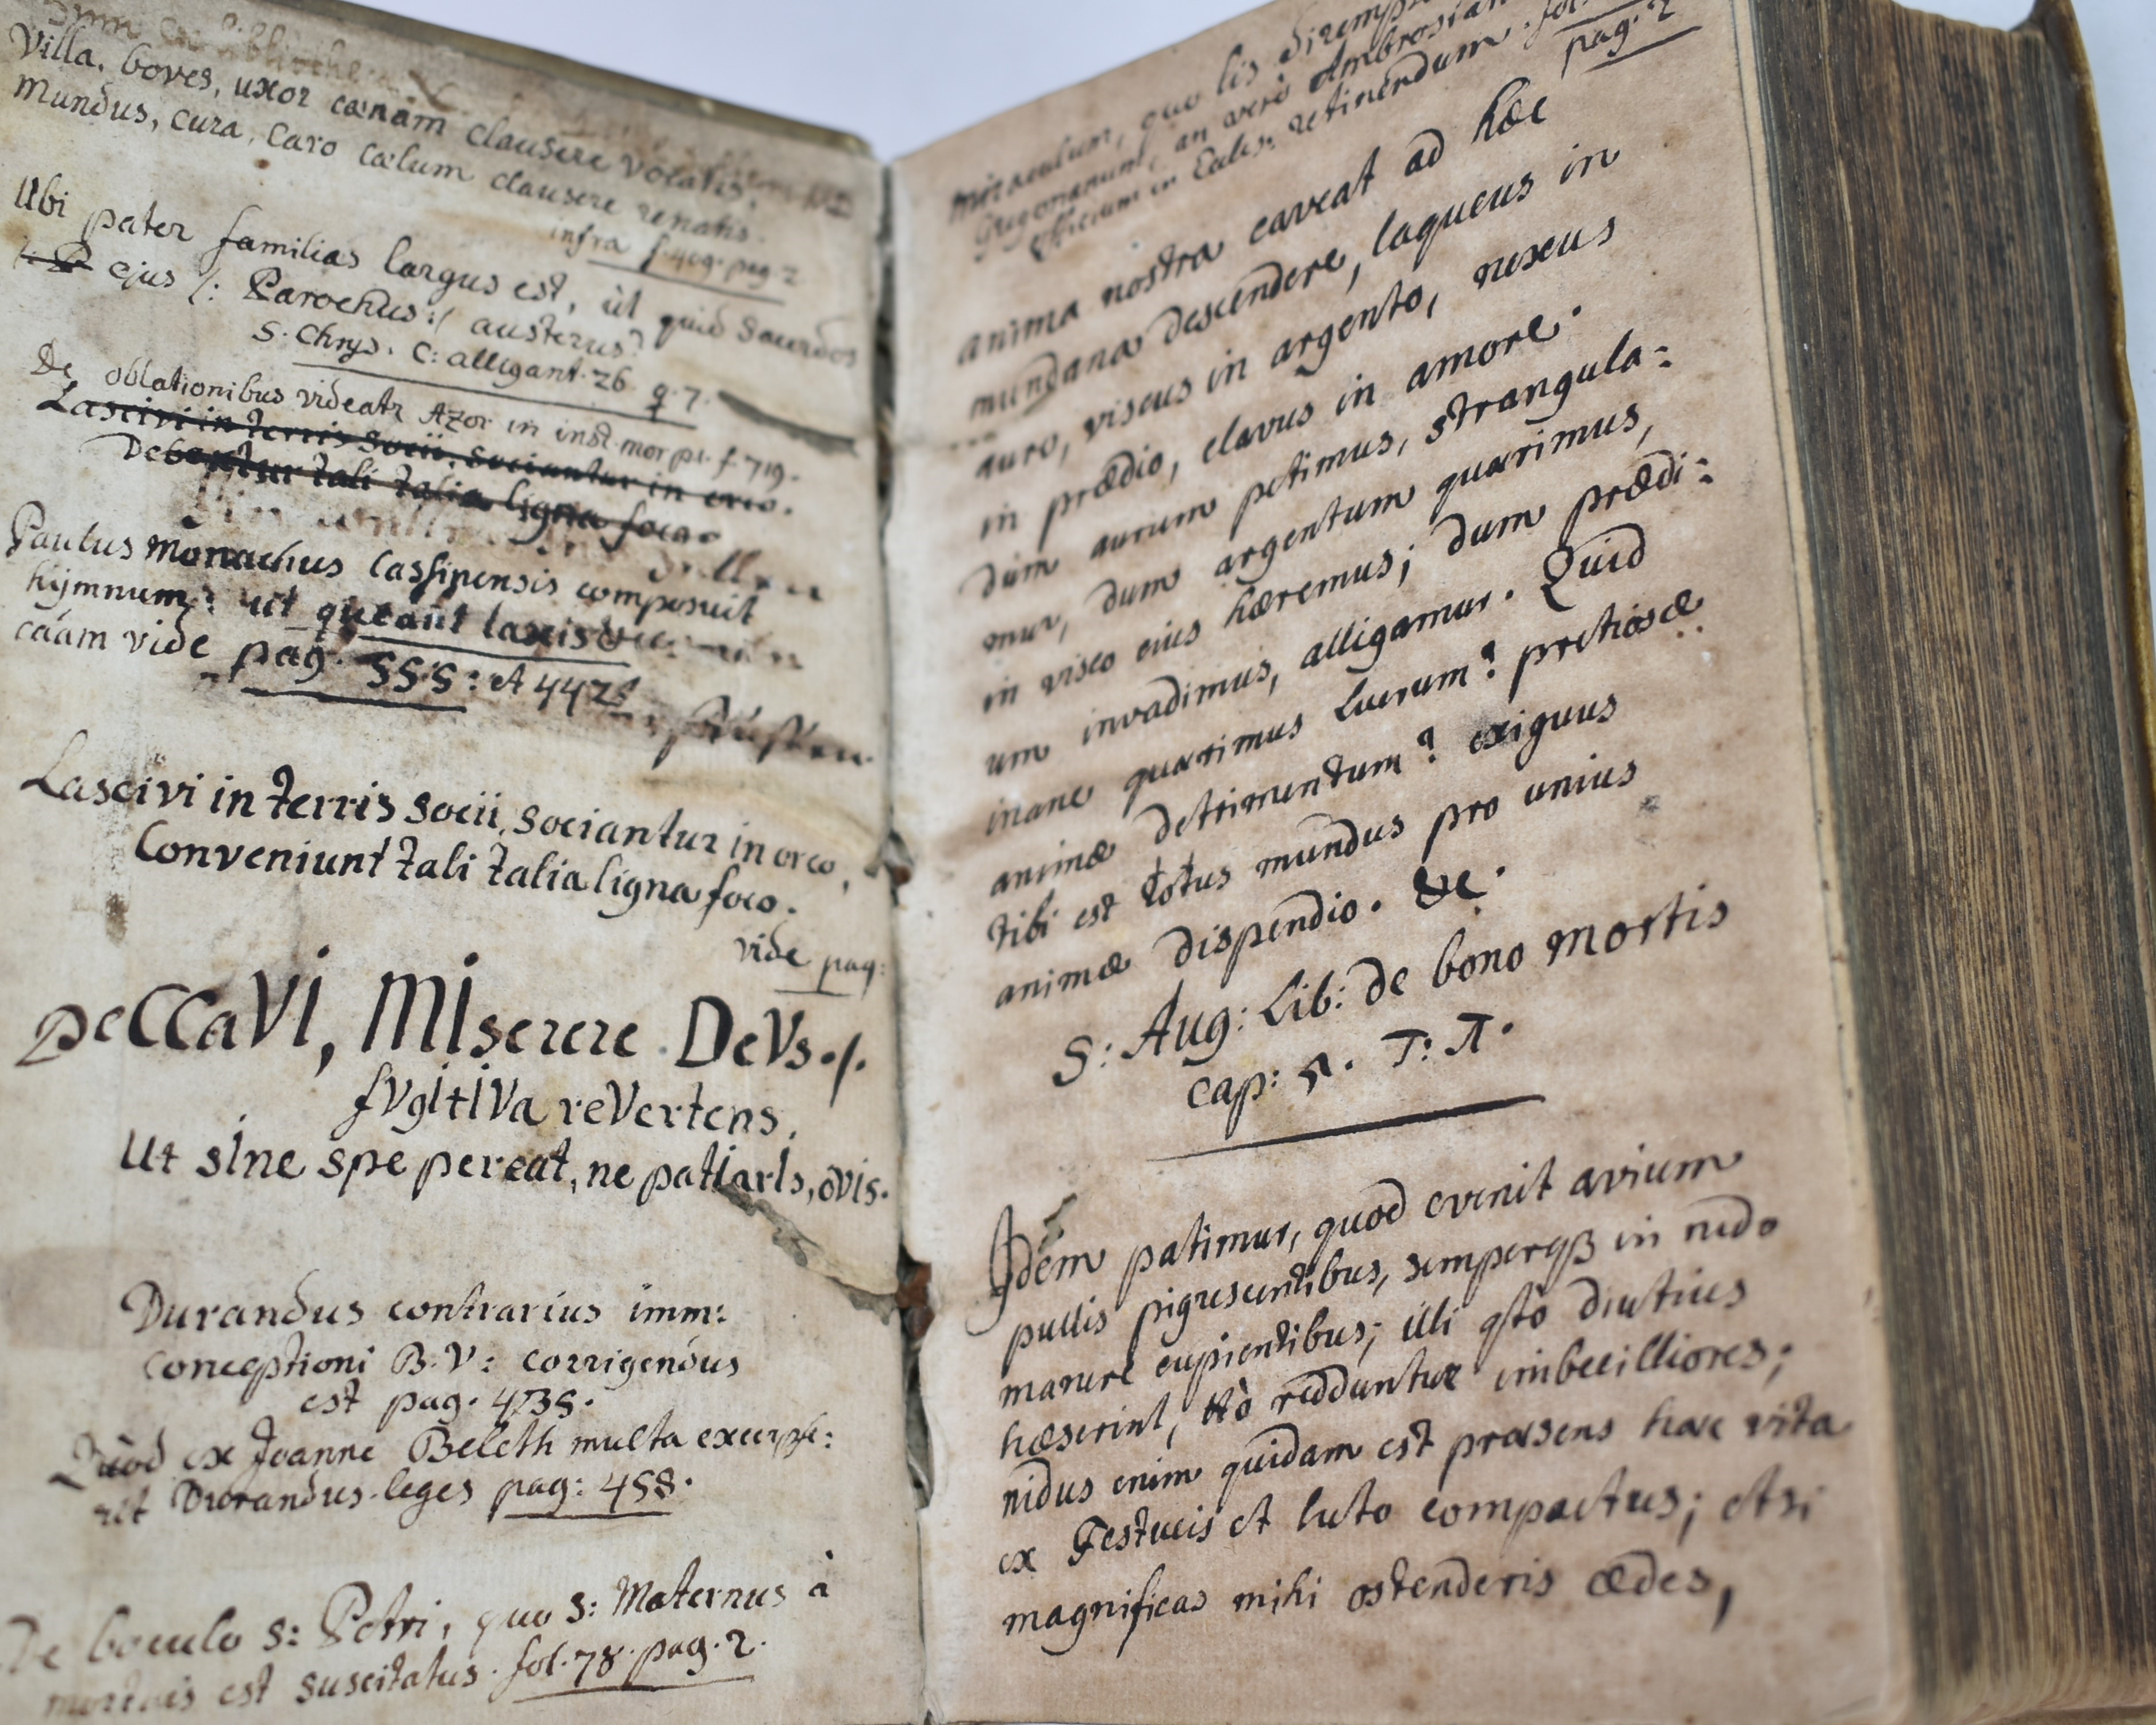 Villa, boves, uxor cœnam clausere vocatis,
Mundus, cura, caro cœlum clausere renatis.
infra f. 409. pag 2
Ubi pater familias largus est, ut quid Sacerdos
ejus /: Parochus :/ austerus?
S. Chrys. C: alligant. 26. q. 7.
De oblationibus videatr Azor in inst. mor p. 1. f. 719.
Lascivi in terris socii, sociantur in orco.
Debentur tali talia ligna foco
Paulus Monachus Cassinensis composuit
hÿmnum: ut queant laxis
caám vide pag. 555: et 442
Lascivi in terris socii, sociantur in orco,
Conveniunt tali talia ligna foco.
vide pag:
peCCaVI, MIserere DeVs./.
fVgItIVa reVertens,
Ut sIne spe pereat, ne patIarIs, oVIs.
Durandus contrarius imm:
conceptioni B. V: corrigendus
est pag. 4735.
Quòd ex Joanne Beleth multa excerpse:
rit Durandus leges pag: 458.
De baculo S: Petri, quo S: Maternus à
mortuis est suscitatus. fol. 78. pag. 2.
Miraculum, quo lis dirempta
Gregorianum, an verò Ambrosian
Officium in Eccles: retinendum. fol.
pag. 2
anima nostra caveat ad hæc
mundana descendere, laqueus in
auro, viscus in argento, nexus
in prædio, clavus in amore.
Dum aurum petimus, strangula:
mur, dum argentum quærimus,
in visco eius hæremus; dum prædi:
um invadimus, alligamur. Quid
inane quærimus lucrum? pretiosæ
animæ detrimentum? exiguus
tibi est totus mundus pro unius
animæ dispendio. &c.
S: Aug: Lib: de bono mortis
cap: 5. T: 4.
Idem patimur, quod evenit avium
pullis pigrescentibus, semperqß in nido
manere cupientibus; illi qsto diutius
hæserint, ttò redduntur imbecilliores;
nidus enim quidam est præsens hæc vita
ex Festucis et luto compactus; etsi
magnificas mihi ostenderis ædes,